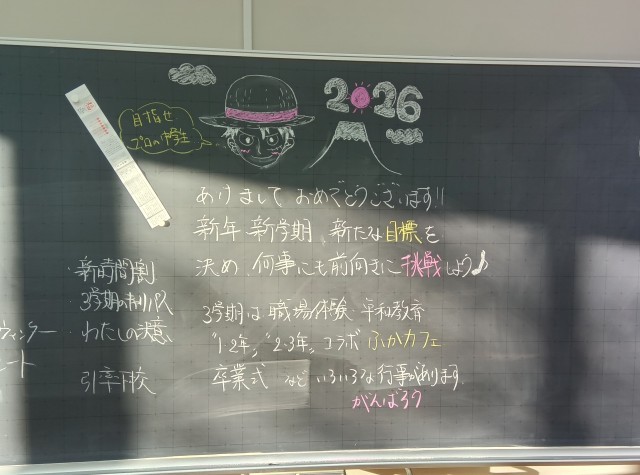 2026
目指せ
プロの中学生
あけまして おめでとうございます!!
新年 新学期 新たな目標を
決め、何事にも前向きに挑戦しよう♪
3学期は 職場体験 平和教育
"1・2年" "2・3年" コラボ ふかカフェ
卒業式 など いろいろな行事があります。
がんばろう
・新時間割
わたしの決意
引率下校
ウィンター
ート